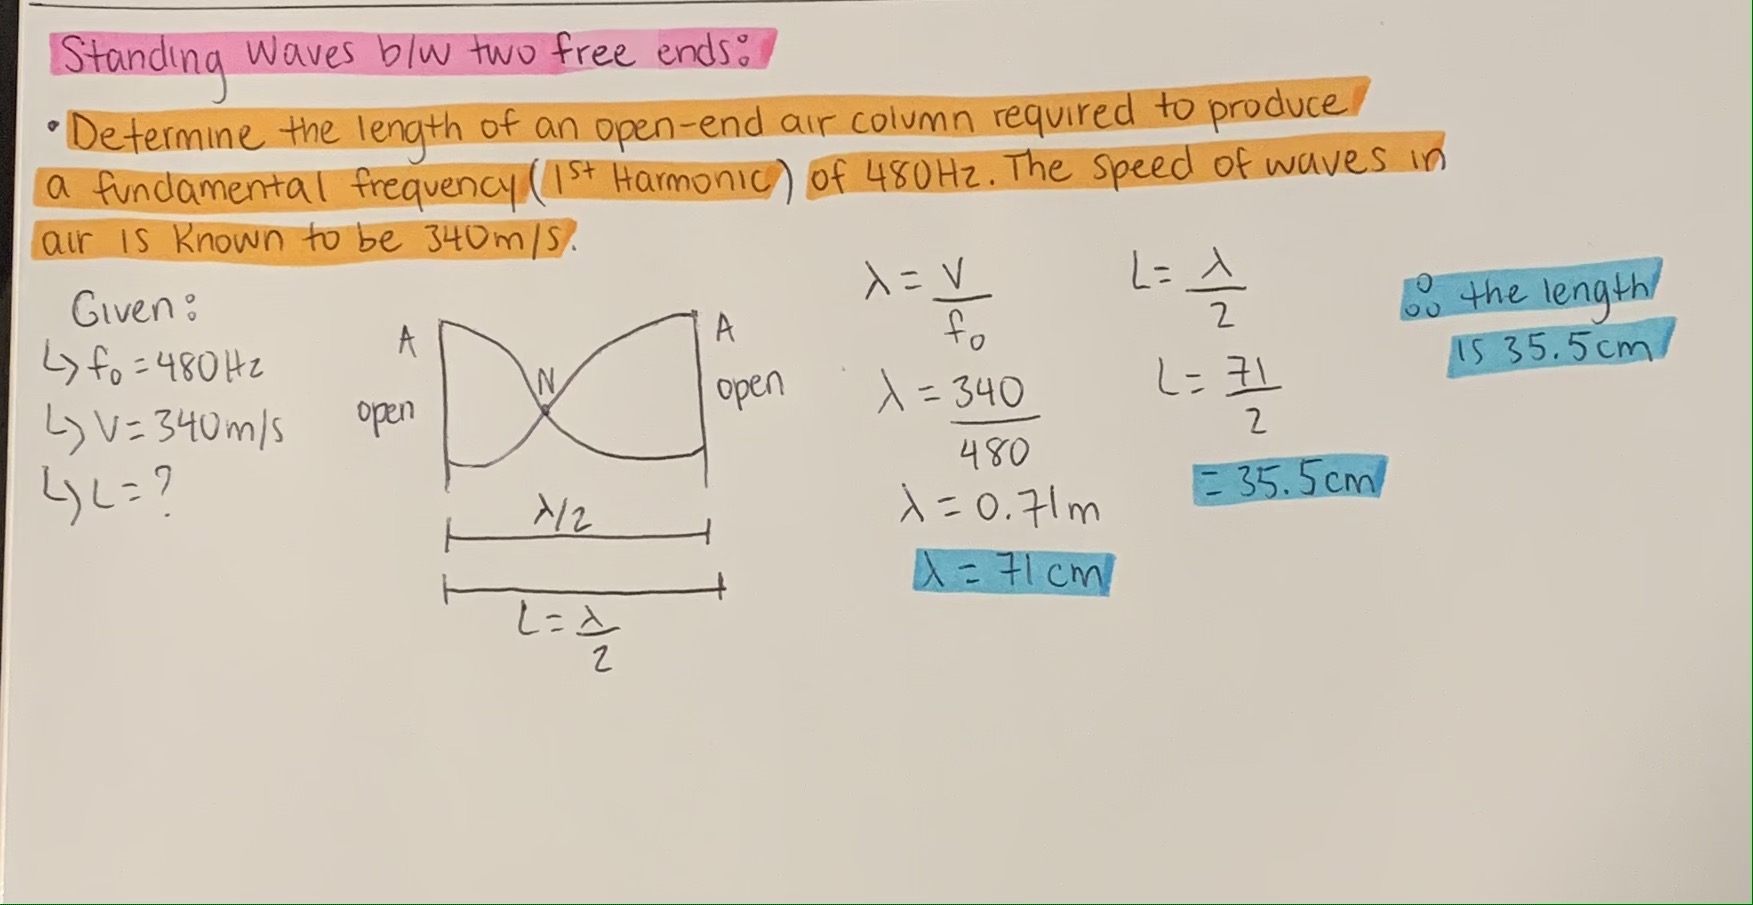 Standing waves b/w two free ends:
• Determine the length of an open-end air column required to produce
a fundamental frequency (1st Harmonic) of 480Hz. The speed of waves in
air is known to be 340m/s.
Given:
↳ f₀ = 480Hz
↳ V = 340m/s
↳ L = ?
A
N
A
open
open
λ/2
L = λ/2
λ = V/f₀
λ = 340/480
λ = 0.71m
λ = 71cm
L = λ/2
L = 71/2
= 35.5cm
∴ the length
is 35.5cm